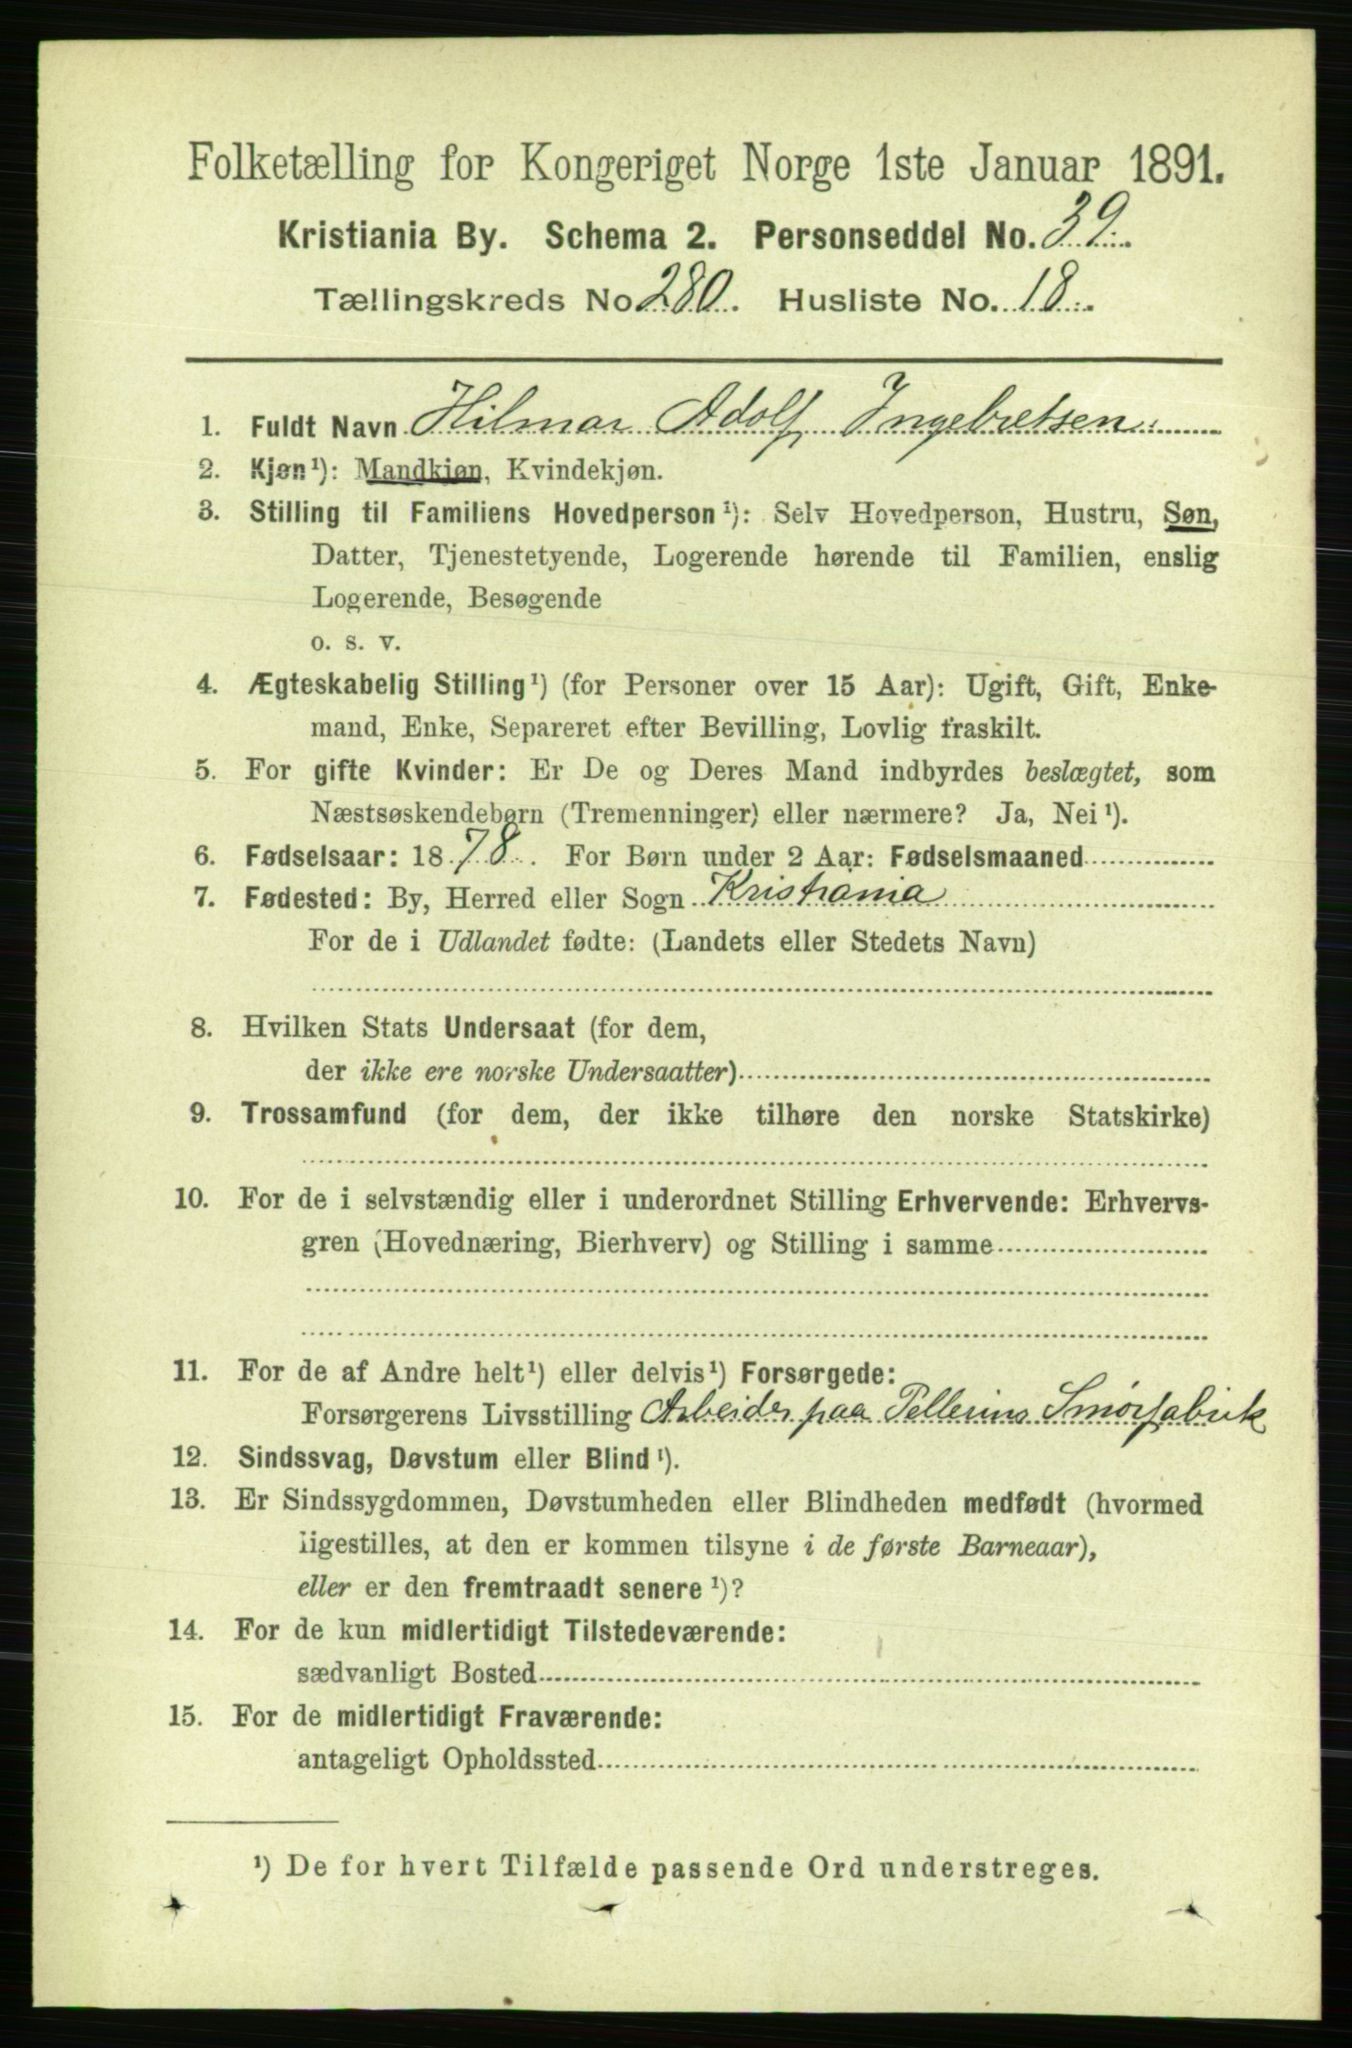 Folketælling for Kongeriget Norge 1ste Januar 1891.
Kristiania By. Schema 2. Personseddel No. 39.
Tællingskreds No 280. Husliste No. 18.
1. Fuldt Navn Hilmar Adolf Ingebretsen
2. Kjøn¹): Mandkjøn, Kvindekjøn.
3. Stilling til Familiens Hovedperson¹): Selv Hovedperson, Hustru, Søn,
Datter, Tjenestetyende, Logerende hørende til Familien, enslig
Logerende, Besøgende
o. s. v.
4. Ægteskabelig Stilling¹) (for Personer over 15 Aar): Ugift, Gift, Enke-
mand, Enke, Separeret efter Bevilling, Lovlig fraskilt.
5. For gifte Kvinder: Er De og Deres Mand indbyrdes beslægtet, som
Næstsøskendebørn (Tremenninger) eller nærmere? Ja, Nei¹).
6. Fødselsaar: 1878. For Børn under 2 Aar: Fødselsmaaned
7. Fødested: By, Herred eller Sogn Kristiania
For de i Udlandet fødte: (Landets eller Stedets Navn)
8. Hvilken Stats Undersaat (for dem,
der ikke ere norske Undersaatter)
9. Trossamfund (for dem, der ikke tilhøre den norske Statskirke)
10. For de i selvstændig eller i underordnet Stilling Erhvervende: Erhvervs-
gren (Hovednæring, Bierhverv) og Stilling i samme
11. For de af Andre helt¹) eller delvis¹) Forsørgede:
Forsørgerens Livsstilling Arbeider paa Pellerins Smørfabrik
12. Sindssvag, Døvstum eller Blind¹).
13. Er Sindssygdommen, Døvstumheden eller Blindheden medfødt (hvormed
ligestilles, at den er kommen tilsyne i de første Barneaar),
eller er den fremtraadt senere¹)?
14. For de kun midlertidigt Tilstedeværende:
sædvanligt Bosted
15. For de midlertidigt Fraværende:
antageligt Opholdssted
¹) De for hvert Tilfælde passende Ord understreges.